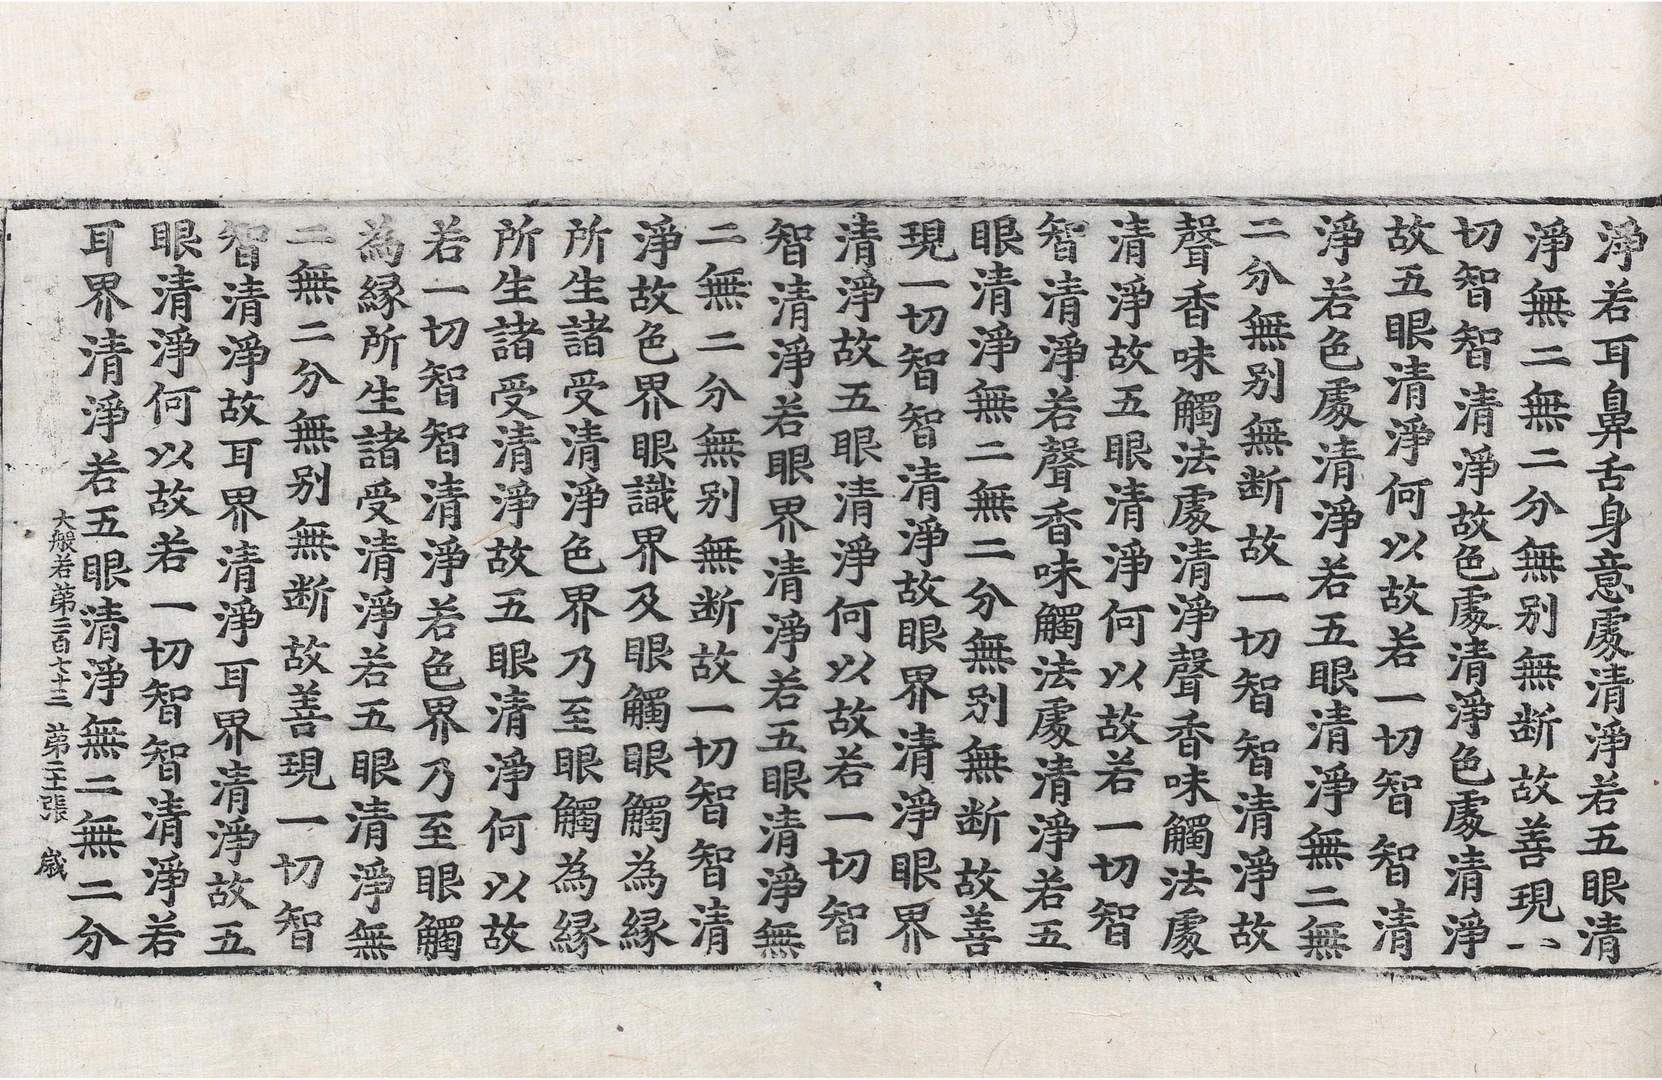 淨若耳鼻舌身意處清淨若五眼清
淨無二無二分無别無断故善現一
切智智清淨故色處清淨色處清淨
故五眼清淨何以故若一切智智清
淨若色處清淨若五眼清淨無二無
二分無别無断故一切智智清淨故
聲香味觸法處清淨聲香味觸法處
清淨故五眼清淨何以故若一切智
智清淨若聲香味觸法處清淨若五
眼清淨無二無二分無别無断故善
現一切智智清淨故眼界清淨眼界
清淨故五眼清淨何以故若一切智
智清淨若眼界清淨若五眼清淨無
二無二分無别無断故一切智智清
淨故色界眼識界及眼觸眼觸為緣
所生諸受清淨色界乃至眼觸為緣
所生諸受清淨故五眼清淨何以故
若一切智智清淨若色界乃至眼觸
為緣所生諸受清淨若五眼清淨無
二無二分無别無断故善現一切智
智清淨故耳界清淨耳界清淨故五
眼清淨何以故若一切智智清淨若
大般若苐二百七十三 苐二 張 歳
耳界清淨若五眼清淨無二無二分